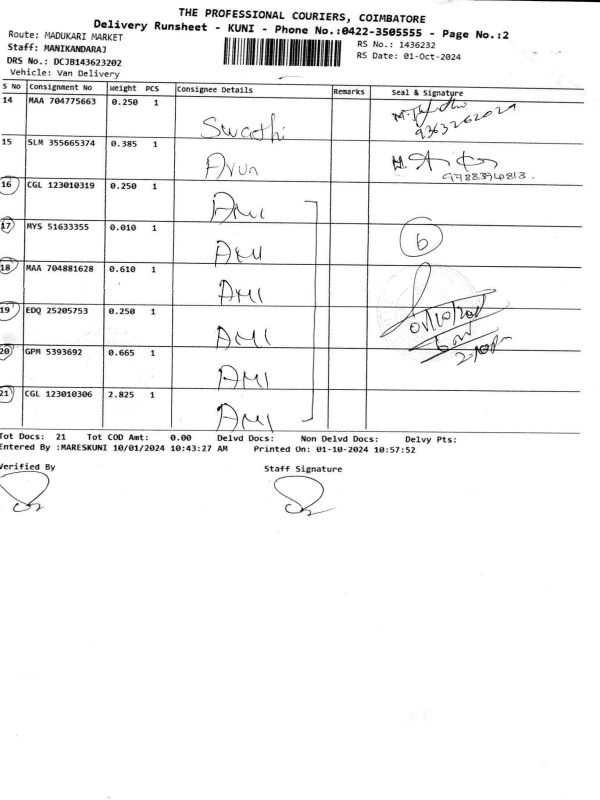 THE PROFESSIONAL COURIERS, COIMBATORE
Delivery Runsheet - KUNI - Phone No.:0422-3505555 - Page No.:2
Route: MADUKARI MARKET
RS No.: 1436232
Staff: MANIKANDARAJ
RS Date: 01-Oct-2024
DRS No.: DCJB143623202
Vehicle: Van Delivery
S No Consignment No Weight PCS Consignee Details Remarks Seal & Signature
14 MAA 704775663 0.250 1 Swathi
9363262021
15 SLM 355665374 0.385 1 Arun
16 CGL 123010319 0.250 1 AMI
17 MYS 51633355 0.010 1 AMI
6
18 MAA 704881628 0.610 1 AMI
19 EDQ 25205753 0.250 1 AMI
20 GPM 5393692 0.665 1 AMI
21 CGL 123010306 2.825 1 AMI
Tot Docs: 21 Tot COD Amt: 0.00 Delvd Docs: Non Delvd Docs: Delvy Pts:
Entered By :MARESKUNI 10/01/2024 10:43:27 AM Printed On: 01-10-2024 10:57:52
Verified By Staff Signature